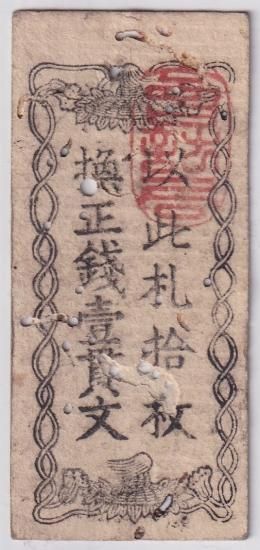 以此札拾枚
換正錢壹貫文